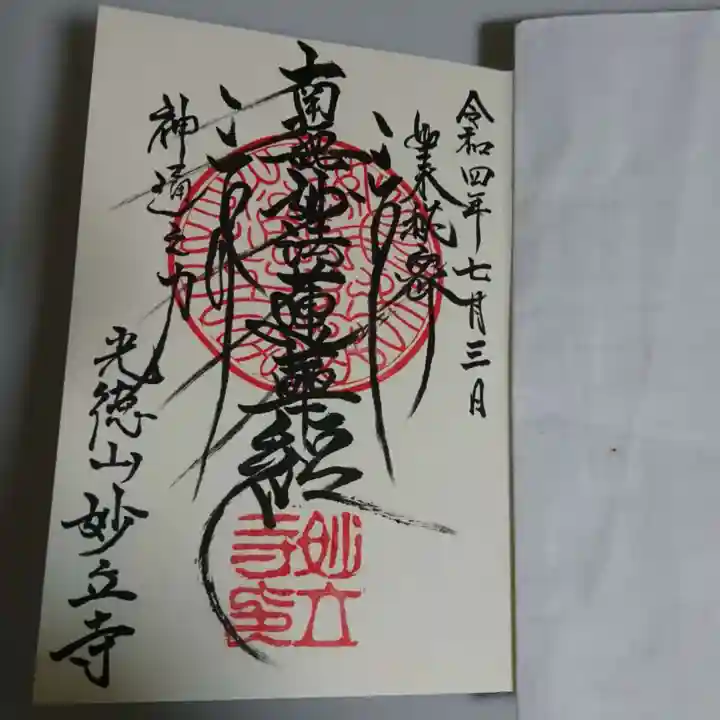 令和四年七月三日
如来秘密
南無妙法蓮華経
神通之力
光徳山妙立寺
妙立寺印